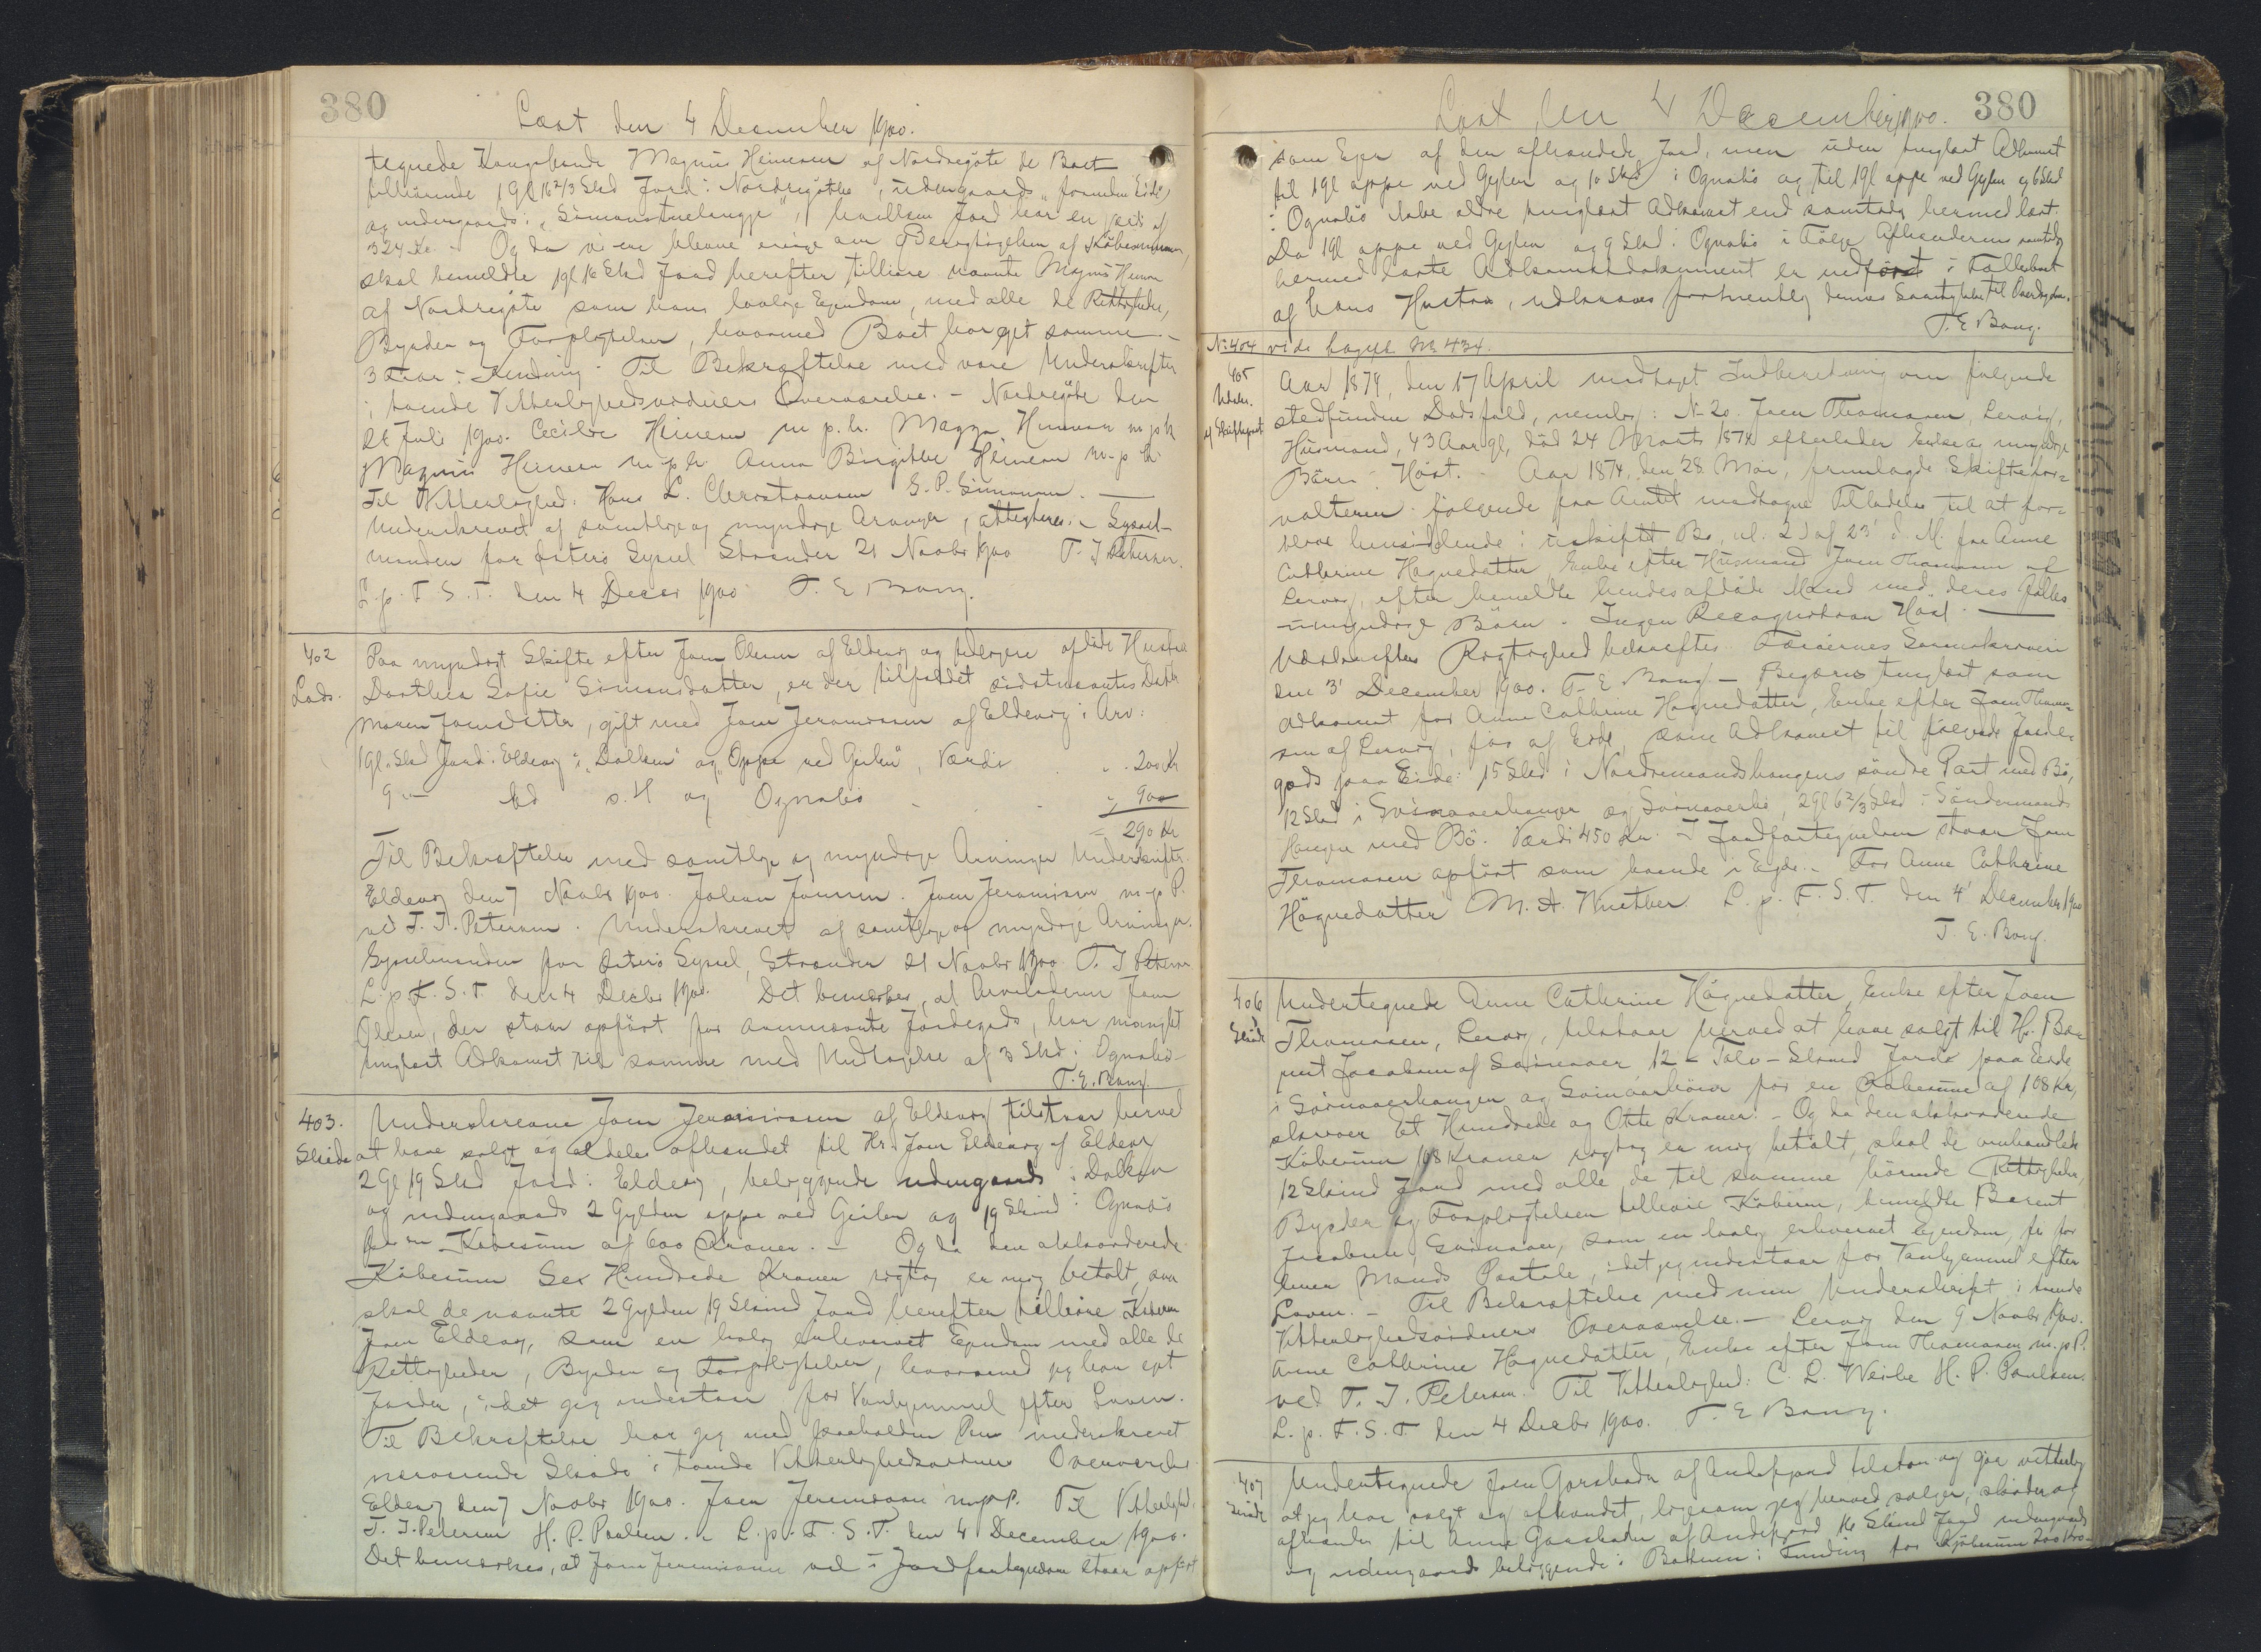 380
Læst den 4 December 1900.
tegnede Kongsbonde Magnus Heinesen af Nordregöte de Boet
tilhörende 1 Gl 16 2/3 Skd Jord i Nordregöthe, udengaards
og indengaards i "Simunstuelengje", hvilken Jord har en Pris af
324 Kr. - Og da vi ere blevne enige om Berigtigelsen af Købesummen,
skal bemeldte 1 Gl 16 Skd Jord herefter tilhøre nævnte Magnus Heinesen
af Nordregöte som hans lovlige Ejendom, med alle de Rettigheder,
Byrder og Forpligtelser, hvormed Boet har ejet samme. -
Til Bekræftelse med vore Underskrifter
i tvende Vitterlighedsvidners Overværelse. - Nordregöte den
24 Juli 1900. Cecilie Heinesen m.p.h. Magga Heinesen m.p.h
Magnus Heinesen m.p.h. Anna Birgithe Heinesen m.p.h.
Til Vitterlighed: Hans L. Christiansen G. P. Simonsen. -
Underskrevet af samtlige og myndige Arvinger, attesteres. - Syssel-
manden for Østerø Syssel Strænder 21 Novbr 1900 T. J. Petersen.
L. p. F. S. T. den 4 Decbr 1900 T. E. Bang.
402
Paa myndigt Skifte efter Joen Olesen af Eldevig og tidligere afdöde Hustru
Lods.
Dorthea Sofie Simonsdatter, er der tilfaldet sidstnævntes Datter
Maren Joensdatter, gift med Joen Jeremiasen af Eldevig i Arv:
1 Gl. Skd Jord i Eldevig i "Dalken" og "Oppe ved Geilen", Værdi . . 200 Kr
9 — Skd s. St og Ognabö - - - " 90
= 290 Kr
Til Bekræftelse med samtlige og myndige Arvinger Underskrifter.
Eldevig den 7 Novbr 1900. Johan Joensen. Joen Jeremiasen m. p. P.
ved T. J. Petersen. Underskrevet af samtlige og myndige Arvinger.
Sysselmanden for Østerø Syssel, Strænder 21 Novbr 1900. T. J. Petersen
L. p. F. S. T. den 4 Decbr 1900. Det bemærkes, at Arveladeren Joen
Olesen, der staar opfört for ommeldte Jordegods, har manglet
tinglæst Adkomst til samme med Undtagelse af 3 Skd i Ognabö -
T. E. Bang.
403.
Underskrevne Joen Jeremiasen af Eldevig tilstaar herved
Sköde
at have solgt og aldeles afhændet til Hr. Joen Eldevig af Eldevig
2 Gl 19 Skd Jord i Eldevig, beliggende indengaards i Dalken
og udengaards 2 Gylden oppe ved Geilen og 19 Skind i Ognabö
for en Købesum af 600 Kroner. - Og da den akkorderede
Købesum Sex Hundrede Kroner rigtig er mig betalt, saa
skal de nævnte 2 Gylden 19 Skind Jord herefter tilhøre Køberen
Joen Eldevig, som en lovlig erhvervet Ejendom med alle de
Rettigheder, Byrder og Forpligtelser, hvormed jeg har ejet
Jorden, idet jeg indestaar for Vanhjemmel efter Loven.
Til Bekræftelse har jeg med paaholden Pen underskrevet
nærværende Skøde i tvende Vitterlighedsvidners Overværelse.
Eldevig den 7 Novbr 1900. Joen Jeremiasen m.p.P. Til Vitterlighed.
T. J. Petersen H. P. Poulsen. - L. p. F. S. T. den 4 December 1900.
Det bemærkes, at Joen Jeremiasen vel i Jordfortegnelsen staar opfört
Læst den 4 December 1900. 380
som Ejer af den afhændede Jord, men uden tinglæst Adkomst
til 1 Gl oppe ved Gejlen og 10 Skd i Ognabö og til 1 Gl oppe ved Gejlen og 6 Skd
i Ognabö uden ældre tinglæst Adkomst end samtidig hermed læst.
Da 1 Gl oppe ved Gejlen og 9 Skd i Ognabö i Fölge Afhænderens samtidig
hermed læste Adkomstdokument er indfört i Fællesboet
af hans Hustru, udkræves formentlig dennes Samtykke til Overdragelsen.
T. E. Bang.
No 404 vide bagved No 434.
405
Aar 1874, den 17 April modtaget Indberetning om følgende
Udskr.
stedfundne Dødsfald, nemlig: No 20. Joen Thomasen, Lervig,
af Skifteprot
Husmand, 43 Aar gl, död 24 Marts 1874 efterlader Enke og umyndige
Börn. Höst. - Aar 1874, den 28 Mai, fremlagde Skiftefor-
valteren følgende fra Amtet modtagne Tilladelse til at for-
blive hensiddende i uskiftet Bo, nl. 2) af 23' d. M. for Anne
Cathrine Høgnedatter Enke efter Husmand Joen Thomasen af
Lervig, efter bemeldte hendes afdöde Mand med deres fælles
umyndige Börn. Ingen Recognition Höst. -
Udskriftens Rigtighed bekræftes. Færöernes Sorenskriveri
den 3' December 1900. T. E. Bang - Begæres tinglæst som
Adkomst for Anne Cathrine Høgnedatter, Enke efter Joen Thoma-
sen af Lervig, før af Eide, som Adkomst til følgende Jorde-
gods paa Eide: 15 Skd i Nordremandshaugens söndre Part med Bö,
12 Skd i Svinaaerhaugen og Svinaaerbö, 2 Gl 6 2/3 Skd i Söndermands
Haugen med Bö. Værdi 450 Kr. I Jordfortegnelsen staar Joen
Thomasen opfört som boende i Ejde. - For Anne Cathrine
Høgnedatter M. A. Winther. L. p. F. S. T. den 4' December 1900
T. E. Bang.
406
Undertegnede Anne Cathrine Høgnedatter, Enke efter Joen
Skøde
Thomasen, Lervig, tilstaar herved at have solgt til Hr. Ba-
rent Jacobsen af Svinaaer 12 - Tolv - Skind Jord paa Eide
i Svinaaerhaugen og Svinaaerböen for en Købesum af 108 Kr,
skriver Et Hundrede og Otte Kroner. - Og da den akkorderede
Købesum 108 Kroner rigtig er mig betalt, skal de omhandlede
12 Skind Jord med alle de til samme hörende Rettigheder,
Byrder og Forpligtelser tilhøre Køberen, bemeldte Barent
Jacobsen, Svinaaer, som en lovlig erhvervet Ejendom, fri for
hver Mands Paatale, idet jeg indestaar for Vanhjemmel efter
Loven. - Til Bekræftelse med min Underskrift i tvende
Vitterlighedsvidners Overværelse. - Lervig den 9 Novbr 1900.
Anne Cathrine Høgnedatter, Enke efter Joen Thomasen m.p.P.
ved T. J. Petersen. Til Vitterlighed: C. L. Weihe H. P. Poulsen.
L. p. F. S. T. den 4 Decbr 1900. T. E Bang.
407
Undertegnede Joen Garsbadn af Andefjord tilstaar og gør vitterligt
Skøde
at jeg har solgt og afhændet, ligesom jeg herved sælger, skøder og
afhænder til Anna Garsbadn af Andefjord 16 Skind Jord indengaards
og udengaards beliggende i Botnen i Funding for Kjöbesum 200 Kro-